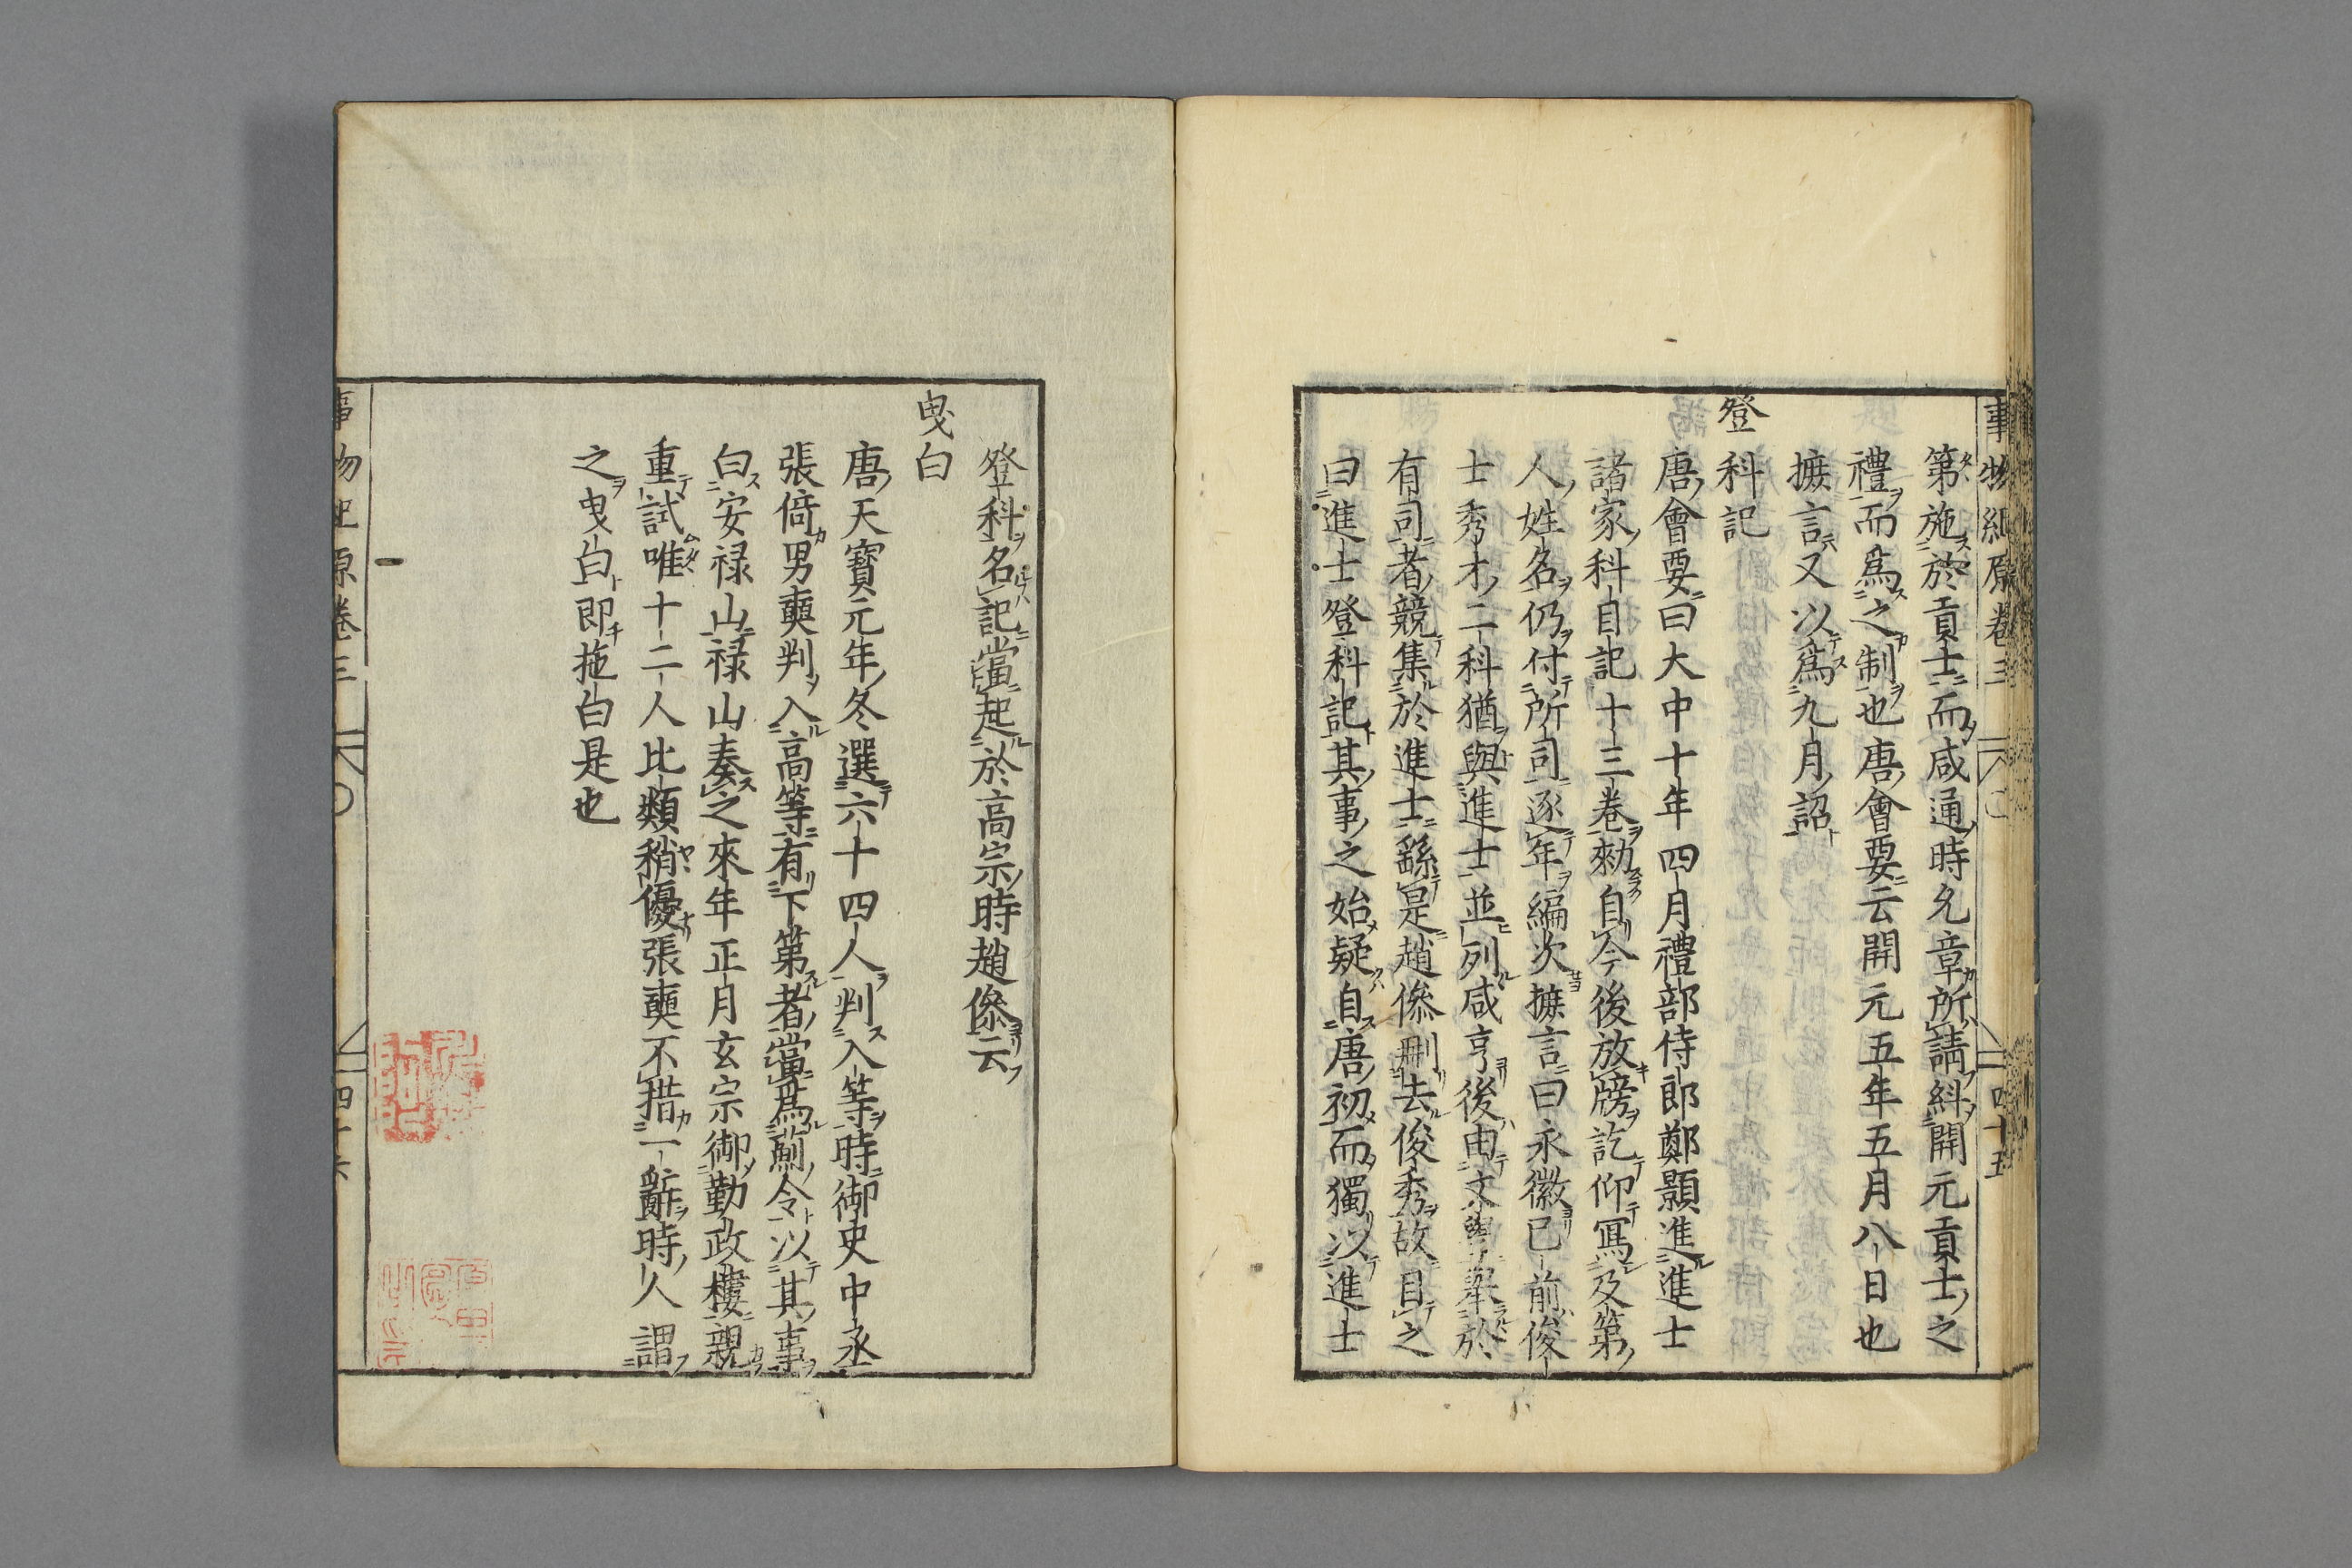 事物紀原卷三
四十五
第施於貢士而咸通時允章所請糾開元貢士之
禮而爲之制也唐會要云開元五年五月八日也
摭言又以爲九月詔
登科記
唐會要曰大中十年四月禮部侍郎鄭顥進進士
諸家科目記十三卷勑自今後放牓訖仰寫及第
人姓名仍付所司逐年編次摭言曰永徽已前俊
士秀才二科猶與進士並列咸亨後由文學舉於
有司者競集於進士繇是趙傪刪去俊秀故目之
曰進士登科記其事之始疑自唐初而獨以進士
登科名記當起於高宗時趙傪云
曳白
唐天寶元年冬選六十四人判入等時御史中丞
張倍男奭判入高等有下第者當爲薊令以其事
白安禄山禄山奏之來年正月玄宗御勤政樓親
重試唯十二人比類稍優張奭不措一辭時人謂
之曳白即拖白是也
事物紀原卷三
四十六